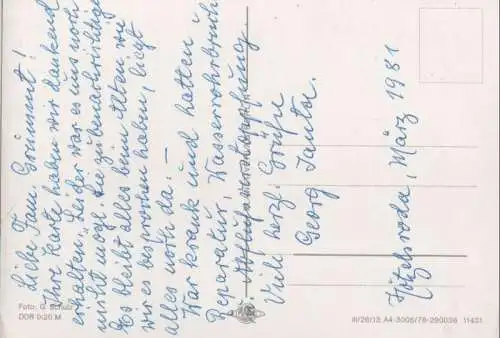 Liebe Fam. Grimmt!
Ihre Karte haben wir dankend
erhalten. Leider war es uns noch
nicht mögl. Sie zu benachrichtigen
Es bleibt alles beim Alten wie
wir es besprochen haben, liegt
alles noch da. –
War krank und hatten
Reparatur, Wasserrohrbruch
Abflußverstopfung
Viele herzl. Grüße
Georg
Hötzelsroda, März 1981
Foto: G. Schulz
DDR 0,20 M
III/26/13 A4-3006/78-290036 11431